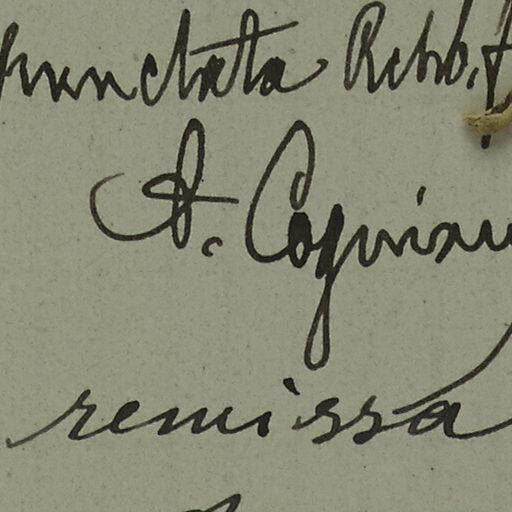 punctata Rchb. f
A. Cogniau
remissa